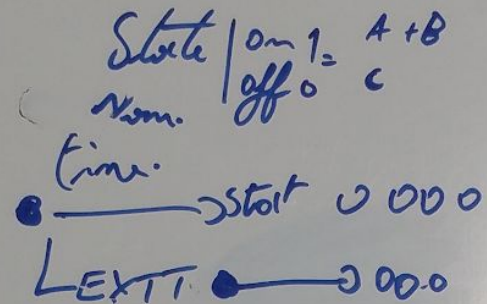 State | on 1 = A + B
off 0 C
Nom.
time.
Start 0 000
EXIT 000